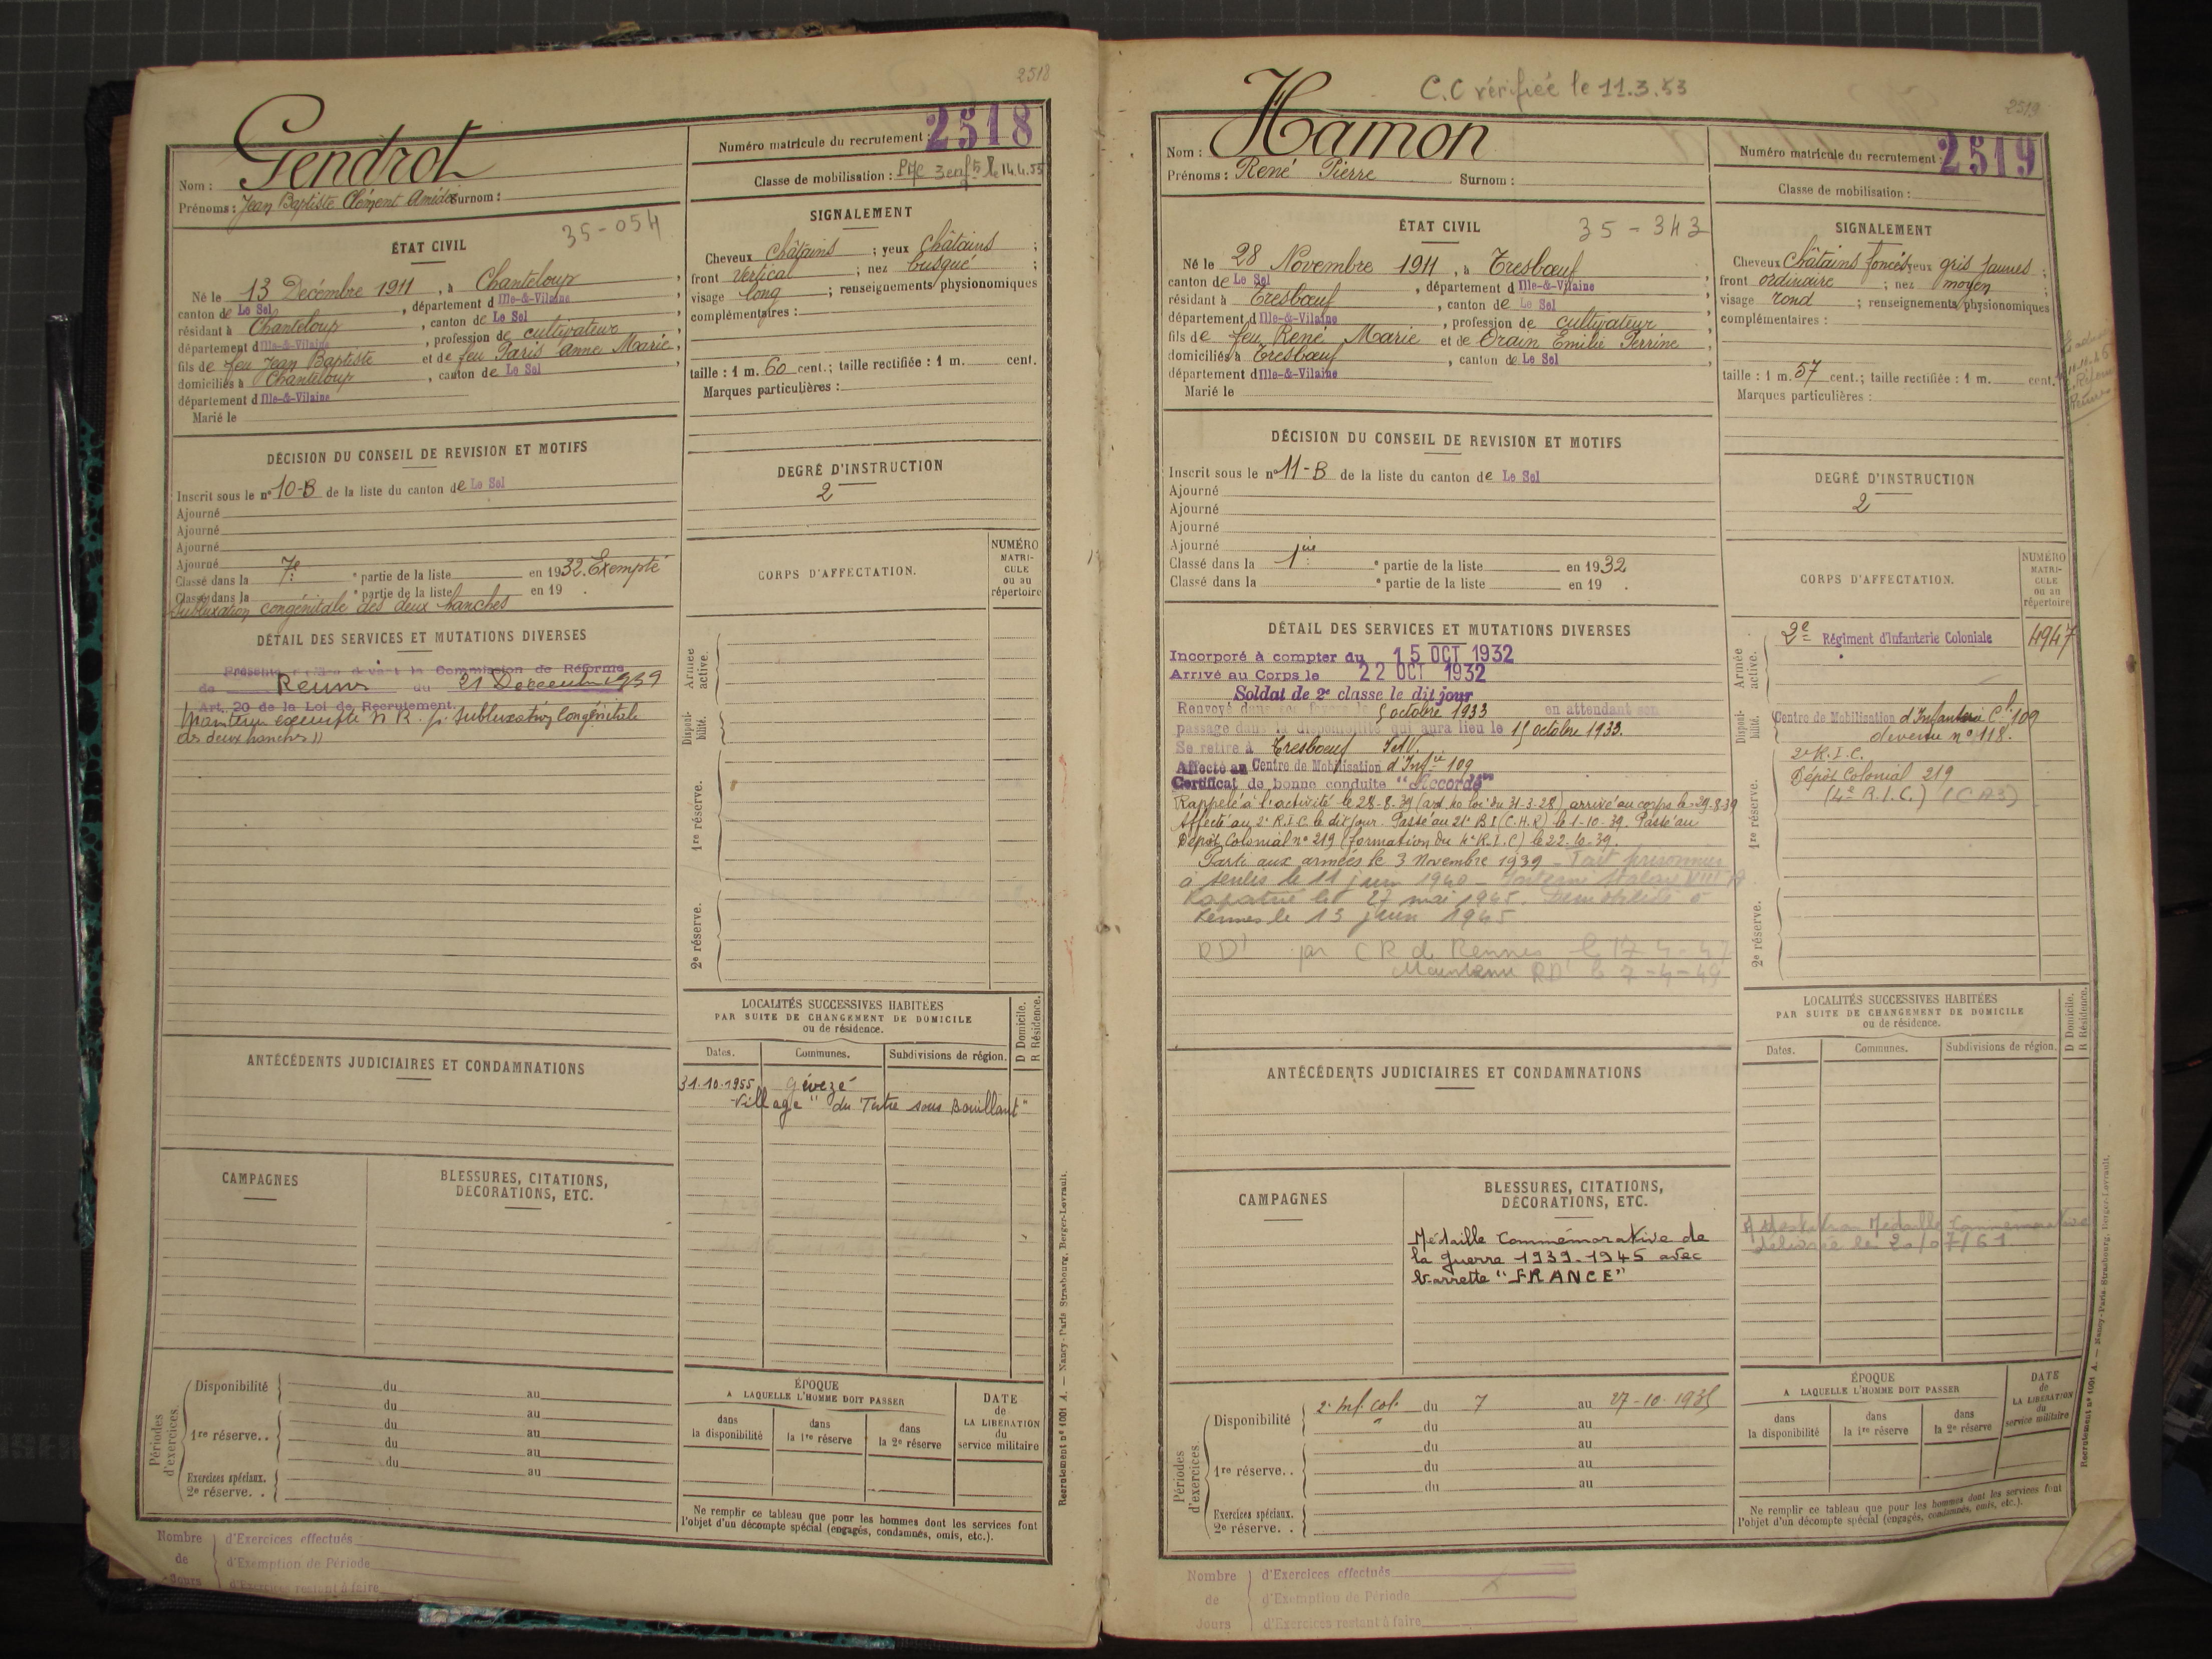 2518
Gendrot
Nom :
Prénoms : Jean Baptiste Clément Amédée Surnom :
Numéro matricule du recrutement : 2518
Classe de mobilisation : le 14.4.55
35-054
ÉTAT CIVIL
Né le 13 Décembre 1911, à Chanteloup,
canton de Le Sel, département d Ille-&-Vilaine
résidant à Chanteloup, canton de Le Sel,
département d Ille-&-Vilaine, profession de cultivateur
fils de feu Jean Baptiste et de feu Paris Anne Marie,
domiciliés à Chanteloup, canton de Le Sel,
département d Ille-&-Vilaine
Marié le
SIGNALEMENT
Cheveux Châtains ; yeux Châtains ;
front Vertical ; nez busqué ;
visage long ; renseignements physionomiques
complémentaires :
taille : 1 m. 60 cent.; taille rectifiée : 1 m. cent.
Marques particulières :
DÉCISION DU CONSEIL DE REVISION ET MOTIFS
Inscrit sous le n° 10-B de la liste du canton de Le Sel
Ajourné
Ajourné
Ajourné
Ajourné
Classé dans la 7e partie de la liste en 1932. Exempté
Classé dans la e partie de la liste en 19 .
Subluxation congénitale des deux hanches
DEGRÉ D'INSTRUCTION
2
DÉTAIL DES SERVICES ET MUTATIONS DIVERSES
devant la Commission de Réforme
de Rennes du 21 Décembre 1939
Art. 20 de la Loi de Recrutement.
Maintenu exempté N R. p. subluxation congénitale
des deux hanches))
CORPS D'AFFECTATION.
NUMÉRO
MATRI-
CULE
ou au
répertoire
Armée active.
Disponi-bilité.
1re réserve.
2e réserve.
LOCALITÉS SUCCESSIVES HABITÉES
PAR SUITE DE CHANGEMENT DE DOMICILE
ou de résidence.
D Domicile.
R Résidence.
Dates. Communes. Subdivisions de région.
31.10.1955 Gévezé
Village " du Tertre sous Bouillant"
ANTÉCÉDENTS JUDICIAIRES ET CONDAMNATIONS
CAMPAGNES
BLESSURES, CITATIONS,
DÉCORATIONS, ETC.
Périodes d'exercices.
Disponibilité du au
du au
1re réserve.. du au
du au
du au
Exercices spéciaux.
2e réserve. . au
ÉPOQUE
A LAQUELLE L'HOMME DOIT PASSER
dans la disponibilité
dans la 1re réserve
dans la 2e réserve
DATE
de
LA LIBÉRATION
du
service militaire
Ne remplir ce tableau que pour les hommes dont les services font
l'objet d'un décompte spécial (engagés, condamnés, omis, etc.).
Recrutement n° 1001 A. — Nancy-Paris-Strasbourg, Berger-Levrault.
Nombre de Jours
d'Exercices effectués
d'Exemption de Période
d'Exercices restant à faire
C.C vérifiée le 11.3.53
2519
Nom : Hamon
Prénoms : René Pierre Surnom :
Numéro matricule du recrutement : 2519
Classe de mobilisation :
ÉTAT CIVIL
35-343
Né le 28 Novembre 1911, à Tresbœuf,
canton de Le Sel, département d Ille-&-Vilaine
résidant à Tresbœuf, canton de Le Sel,
département d Ille-&-Vilaine, profession de cultivateur
fils de feu René Marie et de Orain Emilie Perrine
domiciliés à Tresbœuf, canton de Le Sel,
département d Ille-&-Vilaine
Marié le
SIGNALEMENT
Cheveux Châtains foncés yeux gris jaunes ;
front ordinaire ; nez moyen
visage rond ; renseignements physionomiques
complémentaires :
taille : 1 m. 57 cent.; taille rectifiée : 1 m. cent.
Marques particulières :
DÉCISION DU CONSEIL DE REVISION ET MOTIFS
Inscrit sous le n° 11-B de la liste du canton de Le Sel
Ajourné
Ajourné
Ajourné
Ajourné
Classé dans la 1re partie de la liste en 1932
Classé dans la e partie de la liste en 19 .
DEGRÉ D'INSTRUCTION
2
DÉTAIL DES SERVICES ET MUTATIONS DIVERSES
Incorporé à compter du 15 OCT 1932
Arrivé au Corps le 22 OCT 1932
Soldat de 2e classe le dit jour
Renvoyé dans ses foyers le 5 octobre 1933 en attendant son
passage dans la disponibilité qui aura lieu le 15 octobre 1933.
Se retire à Tresboeuf I et V.
Affecté au Centre de Mobilisation d'Infie 109
Certificat de bonne conduite "Accordé"
Rappelé à l'activité le 28-8-39 (art. 40 loi du 31-3-28), arrivé au corps le 29-8-39
Affecté au 2e R.I.C. le dit jour. Passé au 21e B I (C.H.R) le 1-10-39. Passé au
Dépôt Colonial n° 219 (formation du 4e R.I.C) le 22.10.39.
Parti aux armées le 3 Novembre 1939 - Fait prisonnier
à Senlis le 11 juin 1940 - Interné Stalag VIII
Rapatrié le 27 mai 1945. Démobilisé à
Rennes le 13 juin 1945.
RD1 par CR de Rennes le 17-4-47
Maintenu RD1 le 7-4-49
CORPS D'AFFECTATION.
NUMÉRO
MATRI-
CULE
ou au
répertoire
Armée active.
2e Régiment d'Infanterie Coloniale 4947
Disponi-bilité.
Centre de Mobilisation d'Infanterie Cle 109
devenu n° 118.
1re réserve.
2e R.I.C.
Dépôt Colonial 219
(4e R.I.C.) (CA3)
2e réserve.
LOCALITÉS SUCCESSIVES HABITÉES
PAR SUITE DE CHANGEMENT DE DOMICILE
ou de résidence.
D Domicile.
R Résidence.
Dates. Communes. Subdivisions de région.
Attestation Médaille Commémorative
délivrée le 20/07/61
ANTÉCÉDENTS JUDICIAIRES ET CONDAMNATIONS
CAMPAGNES
BLESSURES, CITATIONS,
DÉCORATIONS, ETC.
Médaille Commémorative de
la guerre 1939-1945 avec
barrette "FRANCE"
Périodes d'exercices.
Disponibilité 2e Inf. Col. du 7 au 27-10-1935
du au
1re réserve.. du au
du au
du au
Exercices spéciaux.
2e réserve. .
ÉPOQUE
A LAQUELLE L'HOMME DOIT PASSER
dans la disponibilité
dans la 1re réserve
dans la 2e réserve
DATE
de
LA LIBÉRATION
du
service militaire
Ne remplir ce tableau que pour les hommes dont les services font
l'objet d'un décompte spécial (engagés, condamnés, omis, etc.).
Recrutement n° 1001 A. — Nancy-Paris-Strasbourg, Berger-Levrault.
Nombre de Jours
d'Exercices effectués
d'Exemption de Période
d'Exercices restant à faire